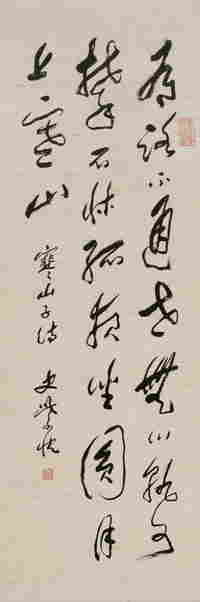 有路不通世無心孰可
攀石牀孤夜坐圓月
上寒山
寒山子詩 史紫忱